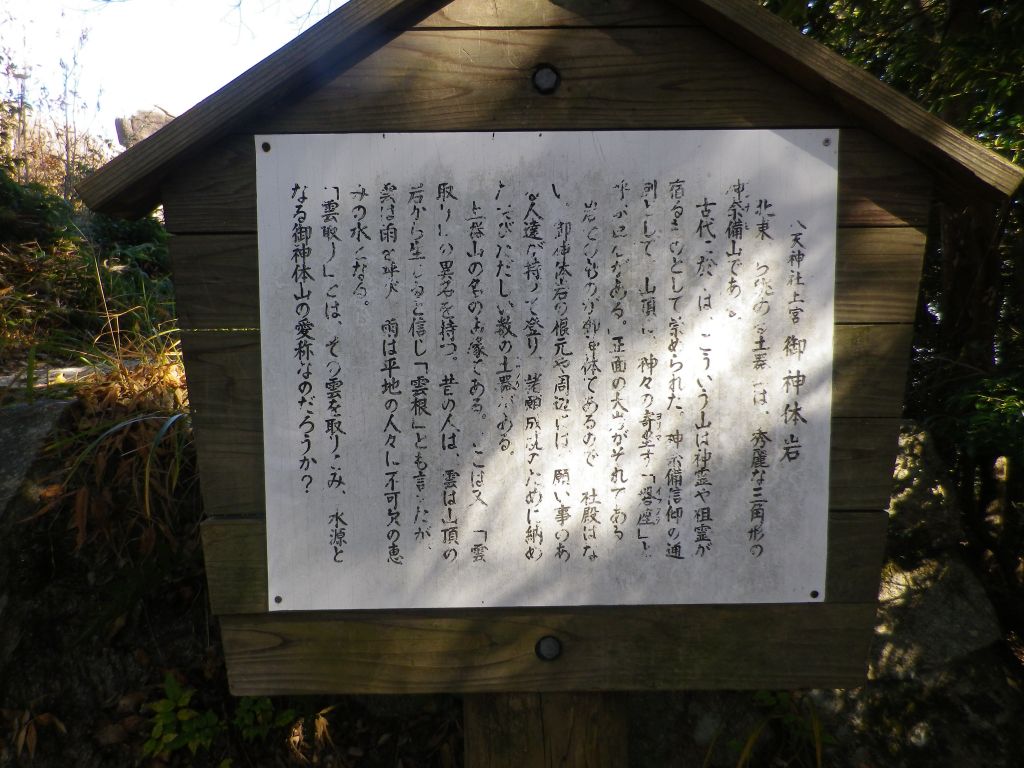 八天神社上宮 御神体岩
北東 ら の 土器 は、秀麗な三角形の
神奈備山である
古代 は こういう山は神霊や祖霊が
宿るものとして崇められた。神奈備信仰の通
例として、山頂に、神々の寄坐す「磐座」と
呼ぶ がある。正面の がそれである
岩そのものが御神体であるので 社殿はな
い。御神体岩の根元や周辺には、願い事のあ
る人達が持って登り、諸願成就のために納め
たおびただしい数の土器がある。
山の名の由縁である。ここは又、「雲
取り」の異名を持つ。昔の人は、雲は山頂の
岩から生じると信じ「雲根」とも言ったが、
雲は雨を呼び 雨は平地の人々に不可欠の恵
みの水となる。
「雲取り」とは、その雲を取りこみ、水源と
なる御神体山の愛称なのだろうか?